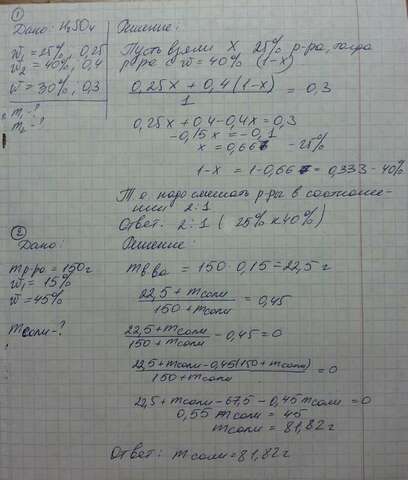 ①
Дано: H₂SO₄
w₁ = 25%, 0,25
w₂ = 40%, 0,4
w = 30%, 0,3
m₁ - ?
m₂ - ?
Решение:
Пусть взяли X 25% р-ра, тогда
р-ра с w = 40% (1-x)
0,25x + 0,4(1-x) / 1 = 0,3
0,25x + 0,4 - 0,4x = 0,3
-0,15x = -0,1
x = 0,667 - 25%
1-x = 1-0,667 = 0,333 - 40%
Т.о. надо смешать р-ры в соотноше-
нии 2:1
Ответ: 2:1 ( 25% к 40%)
②
Дано:
m р-ра = 150 г
w₁ = 15%
w = 45%
m соли - ?
Решение:
m в-ва = 150 · 0,15 = 22,5 г
22,5 + m соли / 150 + m соли = 0,45
22,5 + m соли / 150 + m соли - 0,45 = 0
22,5 + m соли - 0,45(150 + m соли) / 150 + m соли = 0
22,5 + m соли - 67,5 - 0,45 m соли = 0
0,55 m соли = 45
m соли = 81,82 г
Ответ: m соли = 81,82 г